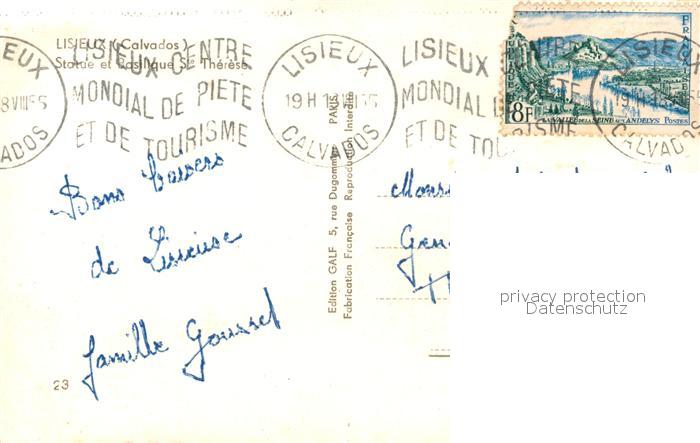 LISIEUX (Calvados)
Statue et Basilique Ste Thérèse
LISIEUX CENTRE
MONDIAL DE PIETE
ET DE TOURISME
LISIEUX
19H
CALVADOS
LISIEUX
MONDIAL
ET DE TOURISME
FRANCE
8F
LA VALLÉE DE LA SEINE AUX ANDELYS POSTES
CALVADOS
Bons baisers
de Lisieux
famille Gousset
23
Edition GALF 5, rue Dugommier PARIS
Fabrication Française Reproduction Interdite
privacy protection
Datenschutz